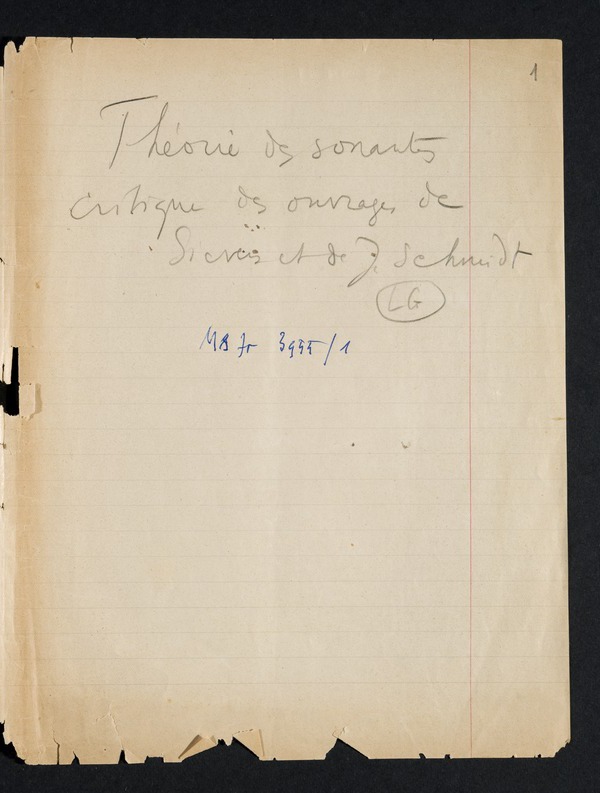 1
Théorie des sonantes
critique des ouvrages de
Sievers et de J. Schmidt
LG
Ms fr 3955/1